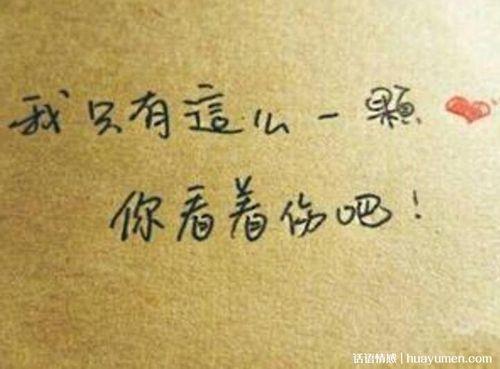 我只有這么一顆❤
你看着伤吧！
话语情感 | huayumen.com